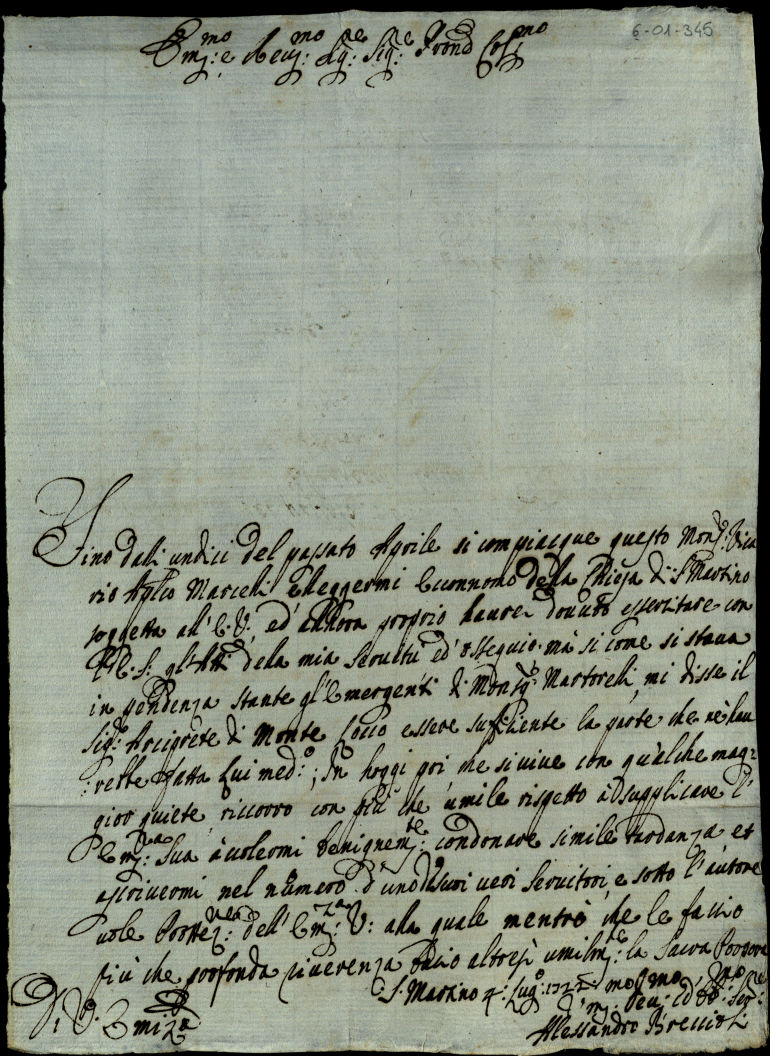 6-01-345
Em:mo e Reu:mo Sig:re Sig:re Prond Col:mo
Fino dalli undici del passato Aprile si compiacque questo Mons:r Vica
rio Marceli elleggermi Econnomo della Chiesa di S Martino
soggetta all'E.V. ed' allhora proprio haurei douuto essercitare con
gl'Atti della mia Seruitù ed' osseguio. mà si come si staua
in pendenza stante gl'Emergenti di Mons:r Martorelli, mi disse il
Sig:r Arciprete di Monte Cocco essere suficiente la parte che ne hau
:rebbe fatta lui med:o; In hoggi poi che si viue con qualche mag:
gior quiete, riccorro con più che umile rispetto ad supplicare l'
Em:za Sua à uolermi benignem:te condonare simile tardanza et
ascriuermi nel numero d'uno de suoi ueri Seruitori, e sotto l'autore
uole Prottez:ne dell'Em:za V: alla quale mentre che le faccio
più che profonda riuerenza bacio altresì umilm:te la Sacra Porpora
S. Martino 4: Lug:o
D. V. Emi:za
Alessandro Breccioli